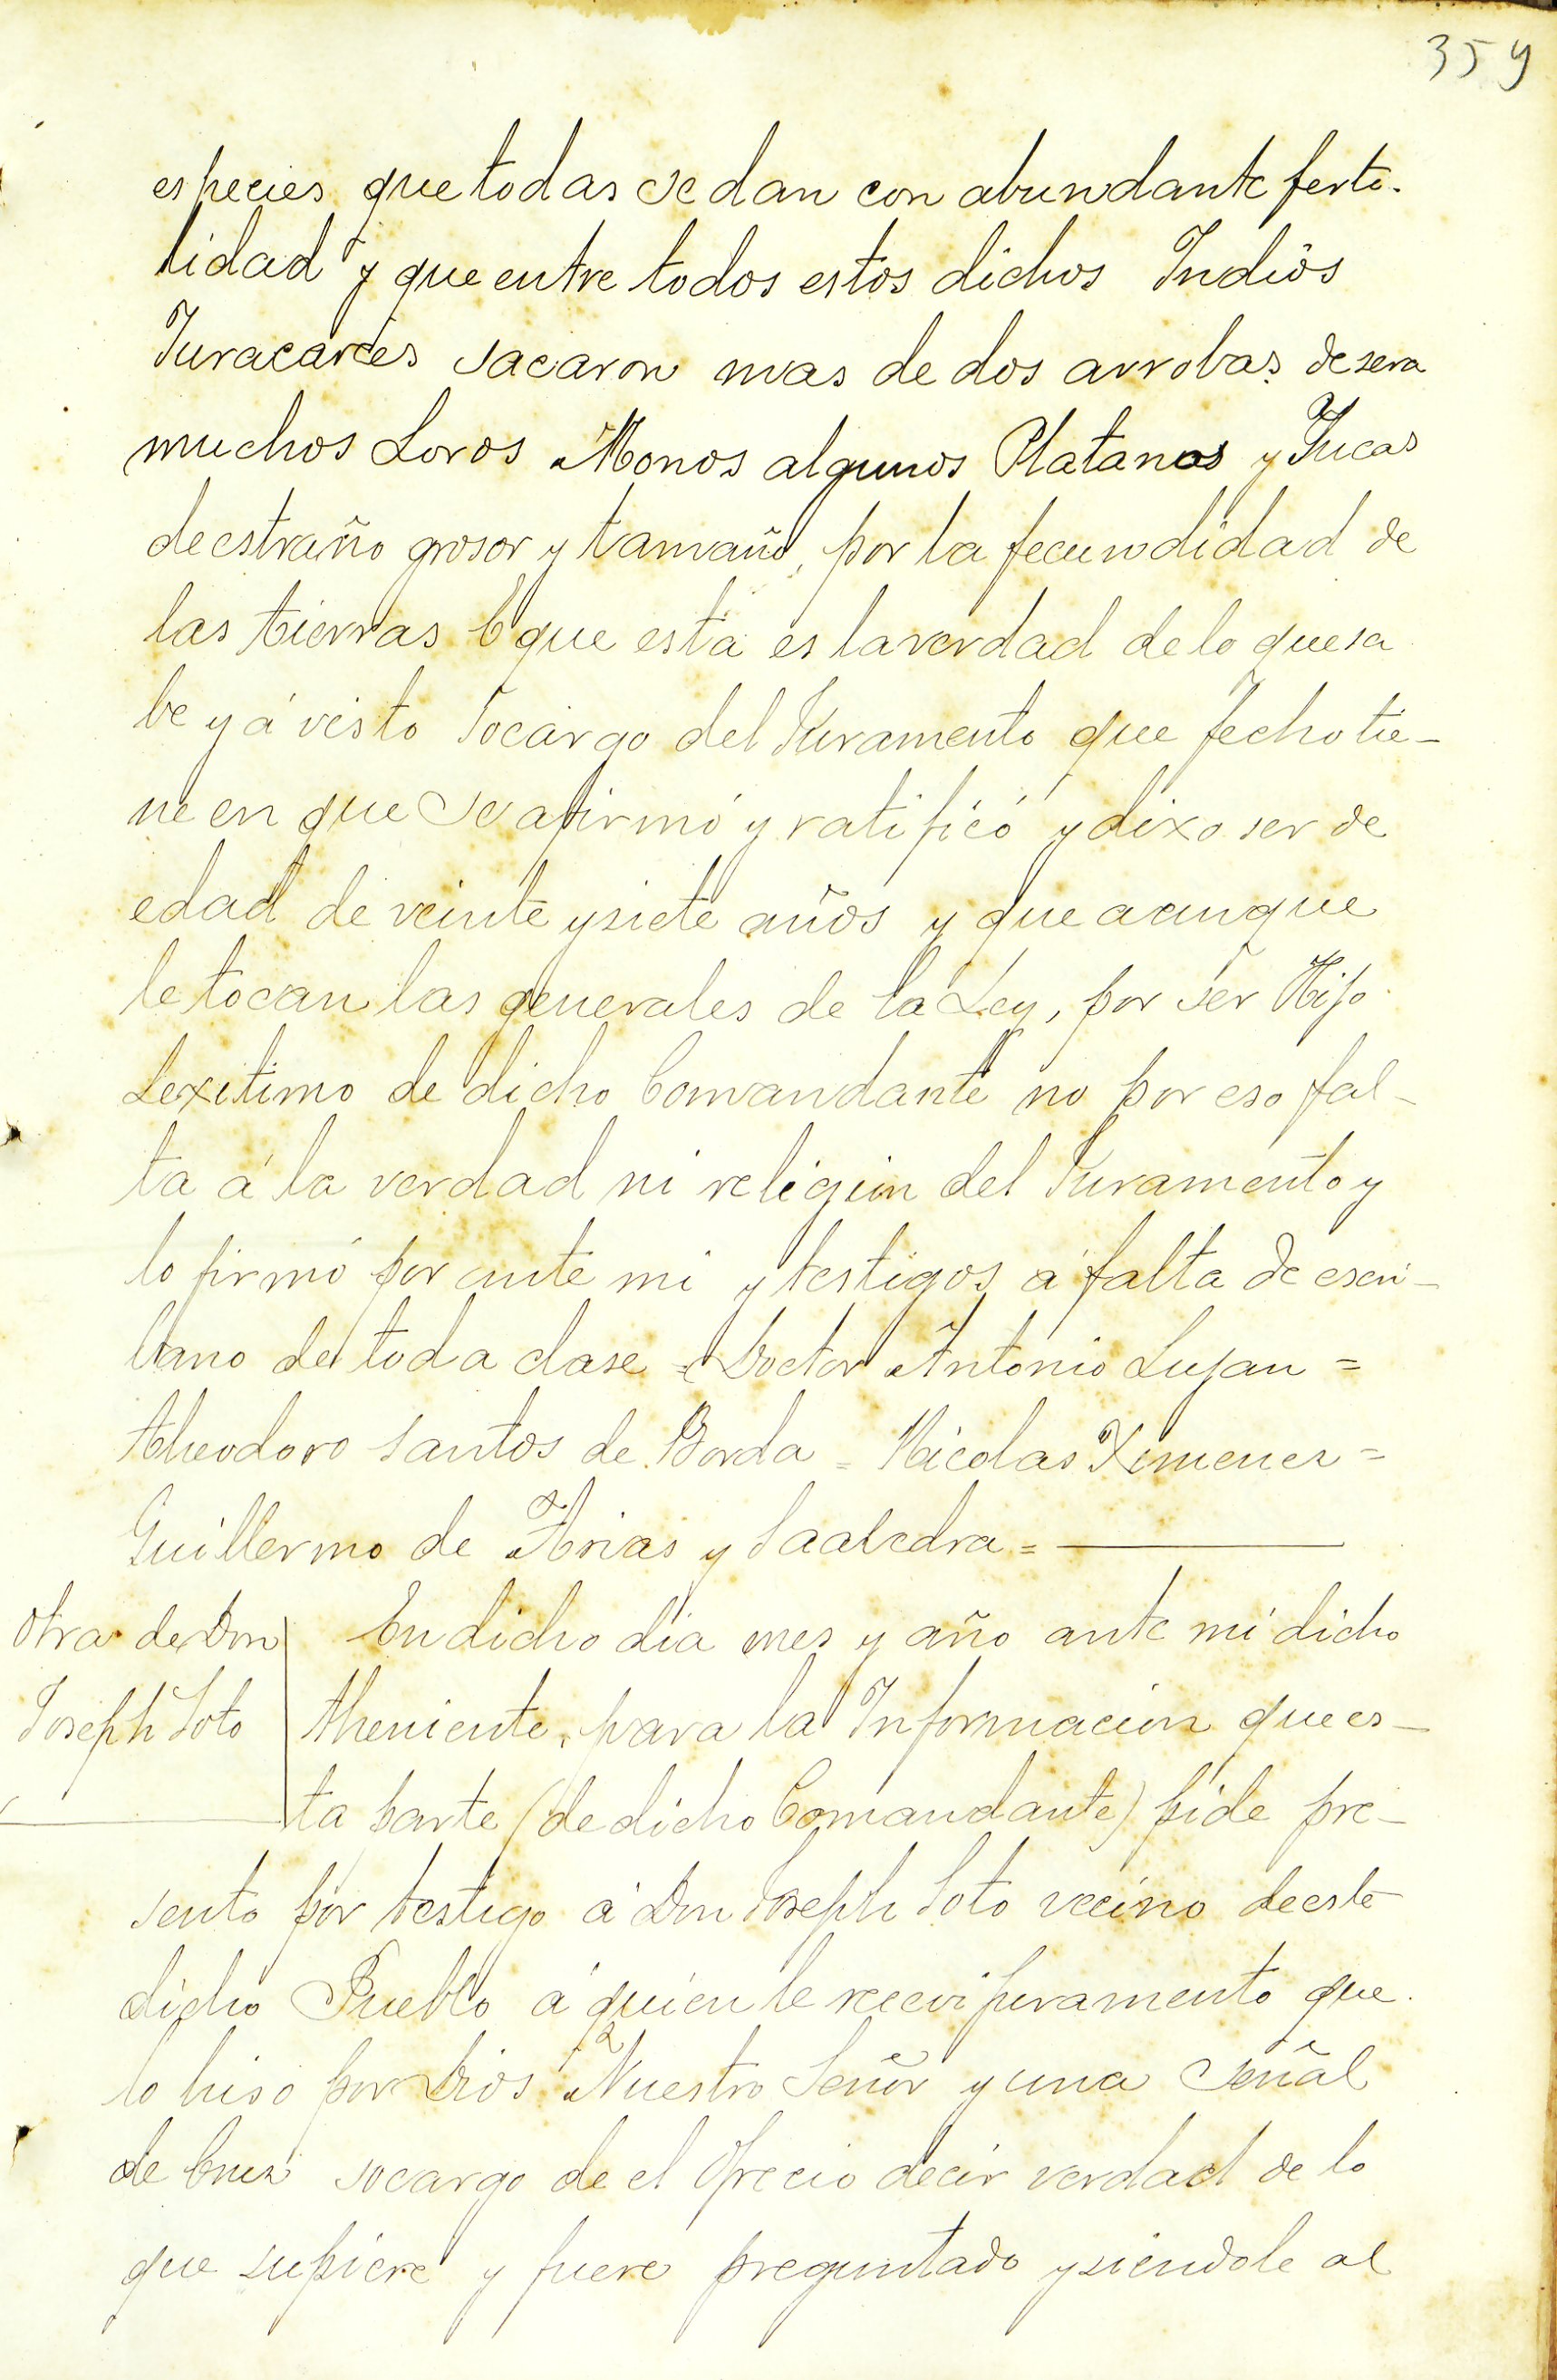 359
especies que todas se dan con abundante ferti-
lidad y que entre todos estos dichos Indios
Yuracarees sacaron mas de dos arrobas de sera
muchos Loros Monos algunos Platanos y Yucas
de estraño grosor y tamaño, por la fecundidad de
las tierras E que esta es la verdad de lo que sa
be y á visto socargo del Juramento que fecho tie-
ne en que se afirmó y ratificó y dixo ser de
edad de veinte y siete años y que aunque
le tocan las generales de la Ley, por ser Hijo
Lexitimo de dicho Comandante no por eso fal-
ta á la verdad ni religion del Juramento y
lo firmó por ante mi y testigos á falta de escri-
bano de toda clase = Doctor Antonio Lujan =
Theodoro Santos de Borda = Nicolas Ximenez =
Guillermo de Arias y Saavedra =
Otra de Don
Joseph Soto
En dicho dia mes y año ante mi dicho
Theniente, para la Informacion que es-
ta parte (de dicho Comandante) pide pre-
sento por testigo á Don Joseph Soto vecino de este
dicho Pueblo á quien le recevi juramento que
lo hiso por Dios Nuestro Señor y una señal
de Cruz socargo de el ofrecio decir verdad de lo
que supiere y fuere preguntado y siendole al